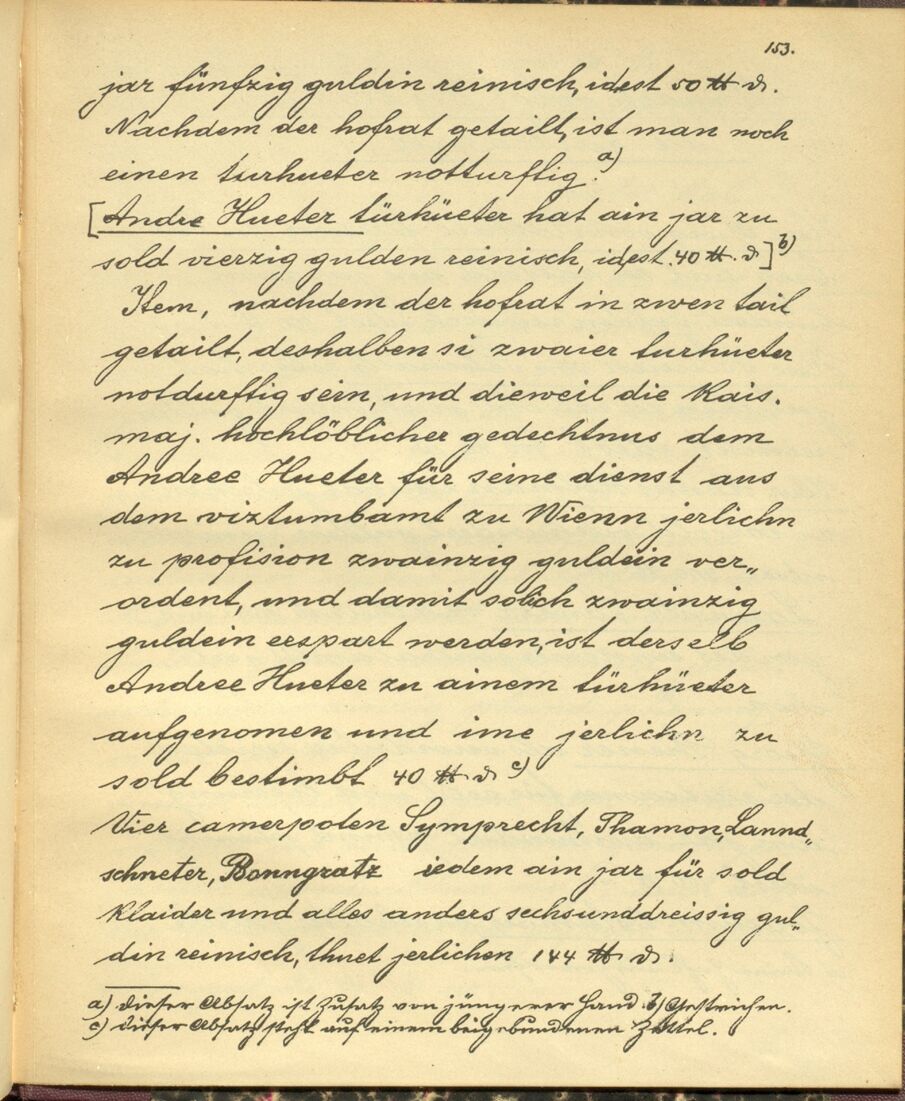 153.
jar fünfzig guldin reinisch, idest 50 ℔ ₰.
Nachdem der hofrat getailt, ist man noch
einen turhueter notturftig. a)
[Andre Hueter türhüeter hat ain jar zu
sold vierzig gulden reinisch, idest 40 ℔. ₰] b)
Item, nachdem der hofrat in zwen tail
getailt, deshalben si zwaier turhüeter
notdurftig sein, und dieweil die Kais.
maj. hochlöblicher gedechtnus dem
Andree Hueter für seine dienst aus
dem viztumbamt zu Wienn jerlichn
zu profision zwainzig guldein ver„
ordent, und damit solich zwainzig
guldein erspart werden, ist derselb
Andree Hueter zu ainem türhüeter
aufgenomen und ime jerlichn zu
sold bestimbt 40 ℔ ₰ c)
Vier camerpoten Symprecht, Thamon, Lannd„
schneter, Bonngratz iedem ain jar für sold
Klaider und alles anders sechsunddreissig gul„
din reinisch, thuet jerlichen 144 ℔ ₰.
a) Dieser Absatz ist Zusatz von jüngerer Hand b) Gestrichen.
c) Dieser Absatz steht auf einem beigebundenen Zettel.